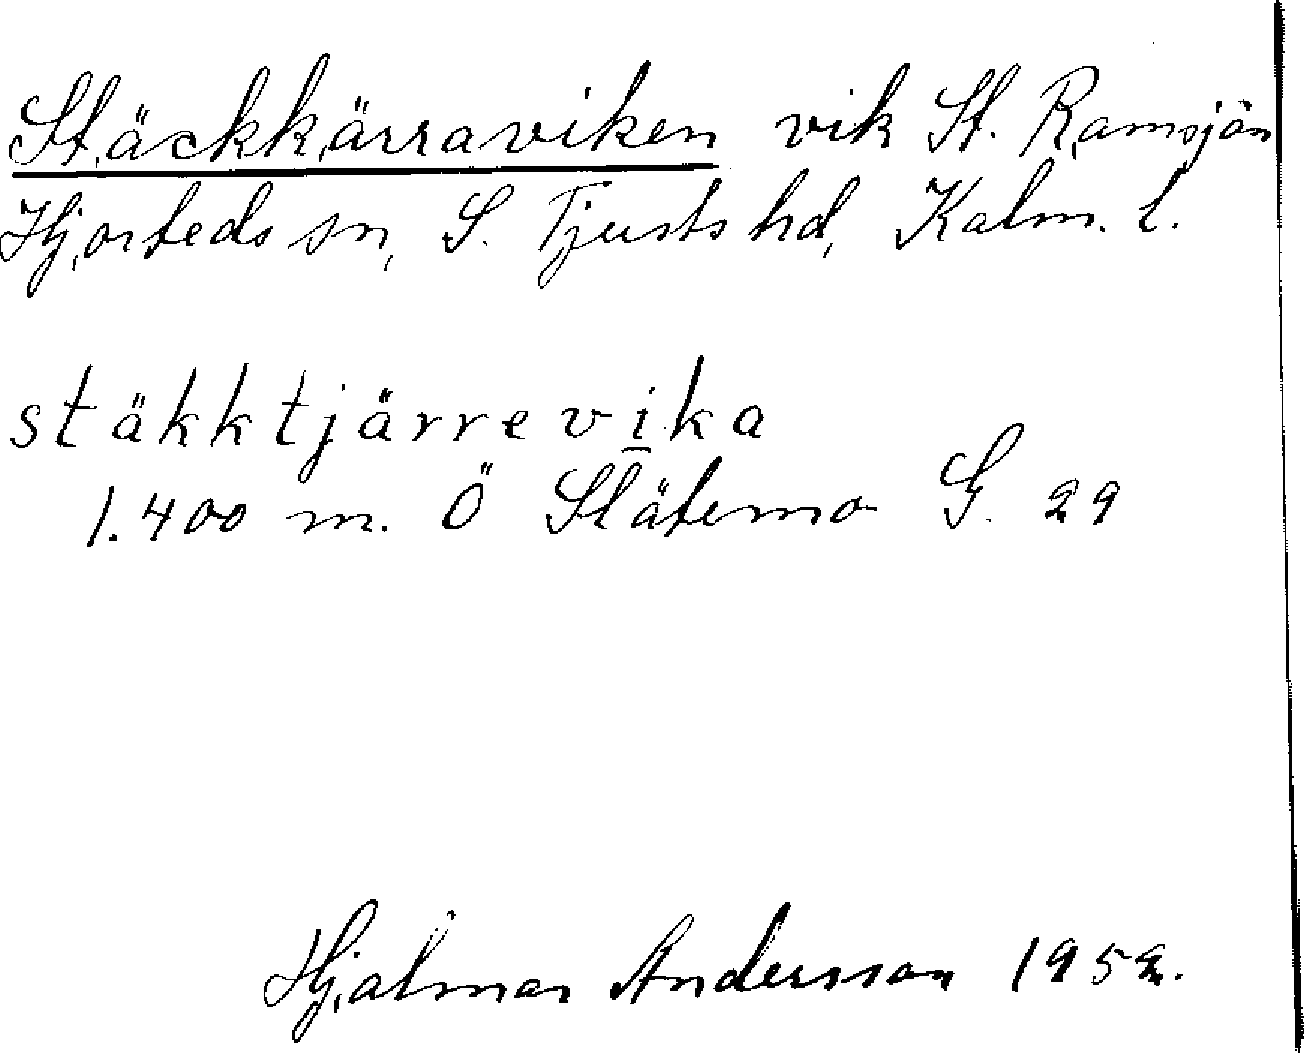 Stäckkärraviken vik St. Ramsjön
Hjorteds sn, S. Tjusts hd, Kalm. l.
stäkktjärrevika
1.400 m. Ö Slätemo G. 29
Hjalmar Andersson 1952.